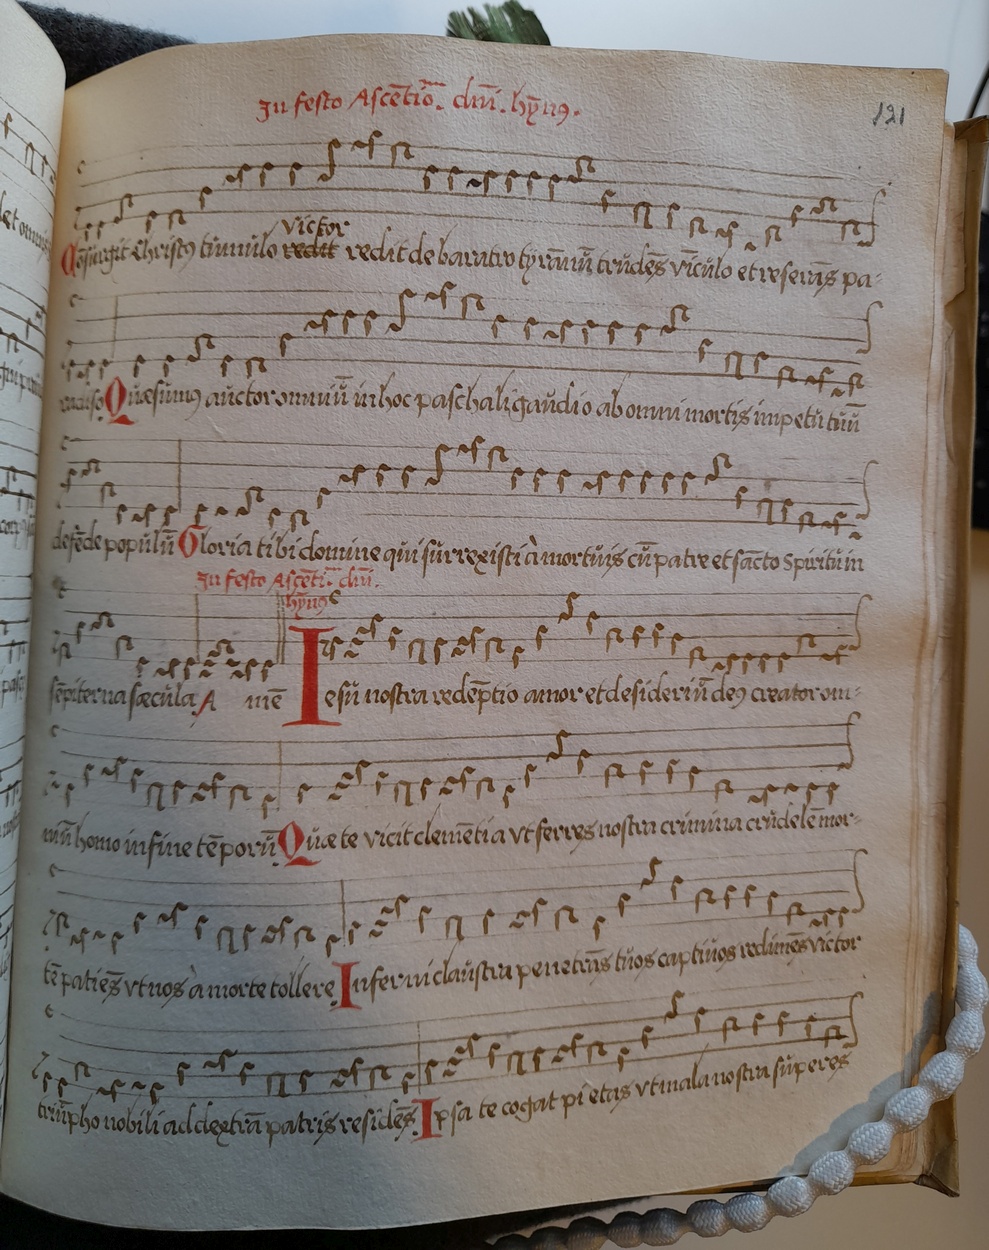 In festo Ascētiō. dn̄i. hȳnꝯ.
121
victor
Cōsurgit Christꝯ tūmūlo redit redit de baratro tyrānū trūdēs vīcūlo et reserās pa-
radiso Quæsumꝯ aūctor omniū in hoc paschali gaūdio ab omni mortis impetū tūū
defēde popūlū Gloria tibi domine qui sūrrexisti à mortūis cū patre et sācto Spiritū in
In festo Ascēti. dn̄i.
hȳnꝯ
sēpiterna sæcūla A mē Iesū nostra redēptio amor et desideriū deꝯ creator om-
niū homo in fine tēporū Quæ te vicit clemētia vt ferres nostra crimina crūdelē mor-
tē patiēs vt nos à morte tolleres Inferni claūstra penetrās tūos captiūos redimēs victor
triūpho nobili ad dextrā patris residēs Ipsa te cogat pietas vt mala nostra sūperes